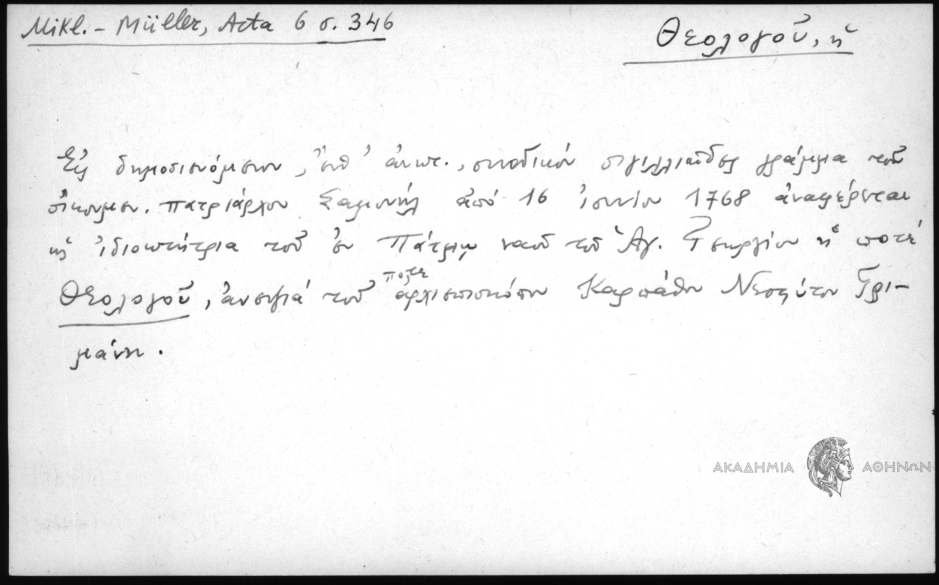 Mikl. - Müller, Acta 6 σ. 346
Θεολογοῦ, ἡ
Εἰς δημοσιευόμενον, ἔνθ' ἀνωτ., συνοδικόν σιγιλλιῶδες γράμμα τοῦ
οἰκουμεν. πατριάρχου Σαμουήλ ἀπό 16 Ἰουνίου 1768 ἀναφέρεται
ὡς ἰδιοκτήτρια τοῦ ἐν Πάτμῳ ναοῦ τοῦ Ἁγ. Γεωργίου ἡ ποτέ
Θεολογοῦ, ἀνεψιά τοῦ ποτε ἀρχιεπισκόπου Καρπάθου Νεοφύτου Γρι-
μάνη.
ΑΚΑΔΗΜΙΑ ΑΘΗΝΩΝ